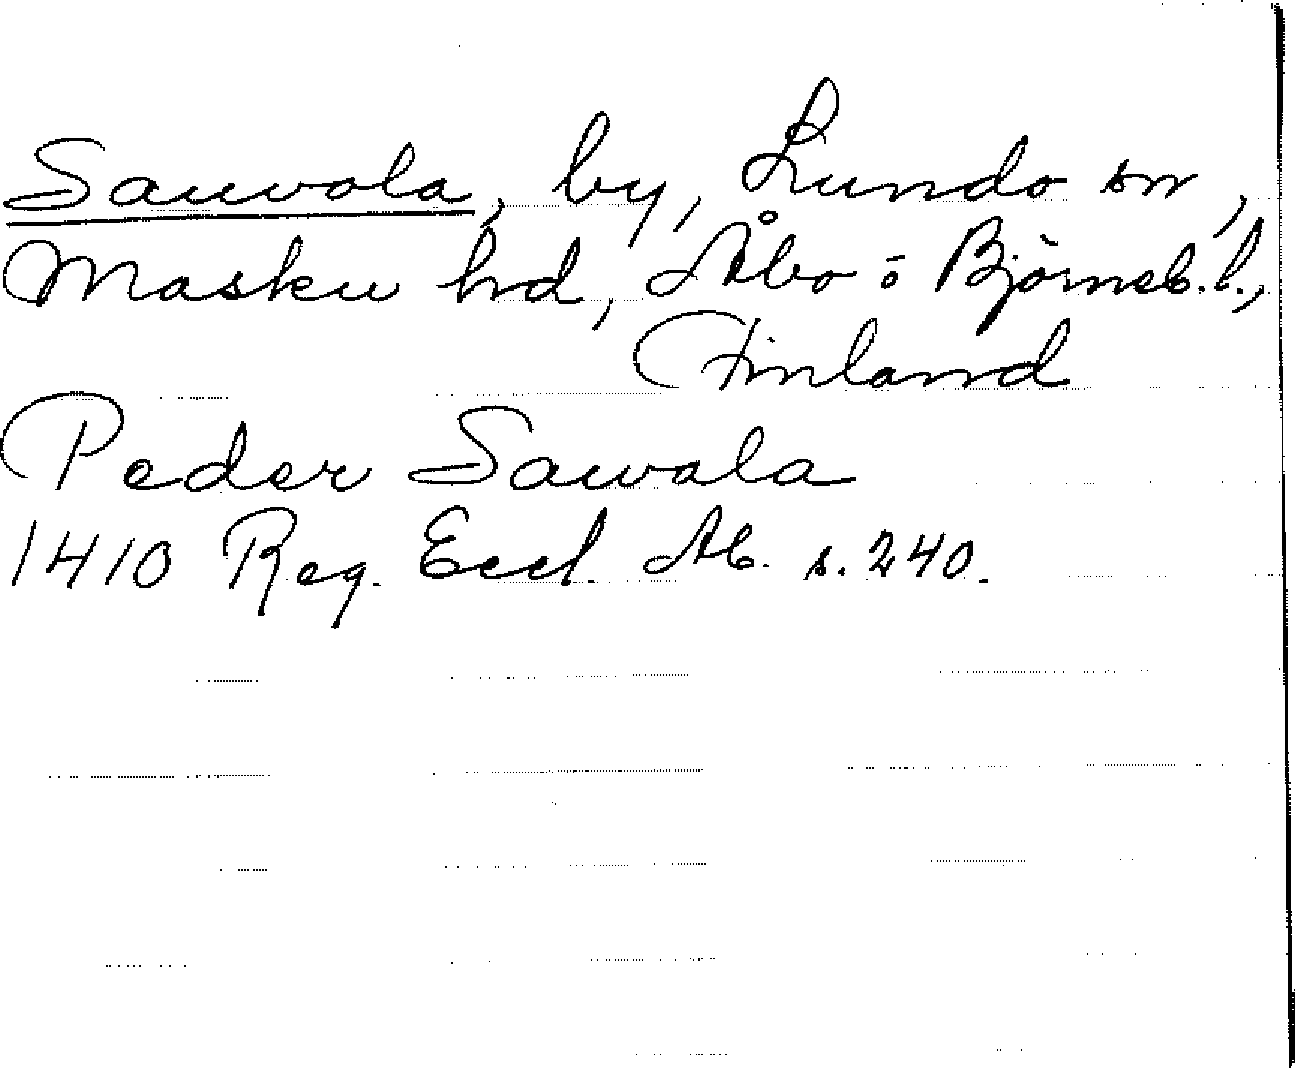 Sauvola, by, Lundo sn,
Masku hd, Åbo ö Björneb. l.,
Finland
Peder Sawala
1410 Reg. Eccl. Ab. s. 240.